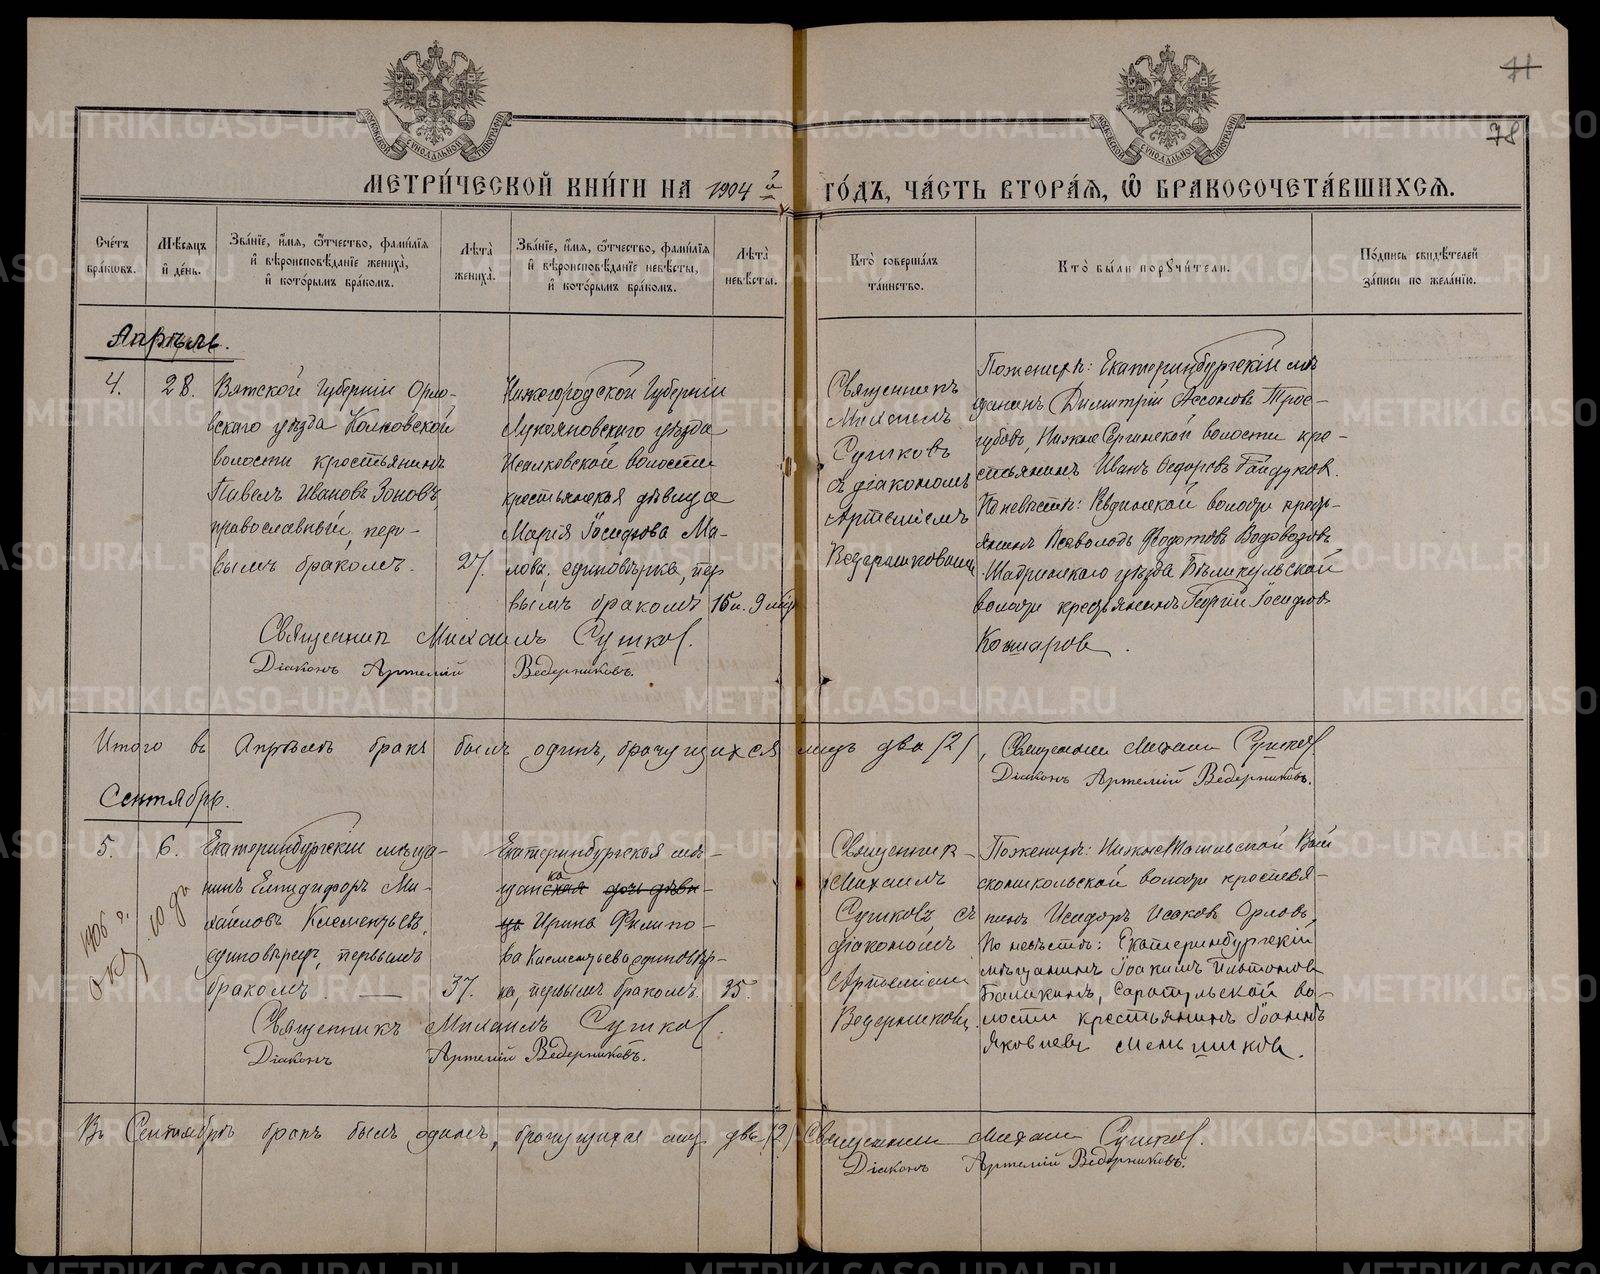 11
78
МЕТРИ́ЧЕСКОЙ КНИ́ГИ НА 1904 й ГО́ДЪ, ЧА́СТЬ ВТОРА́Я, Ѡ҆ БРАКОСОЧЕТА́ВШИХСЯ.
Сче́тъ бра́ковъ.
Мѣ́сяцъ и҆ де́нь.
Зва́нїе, и҆́мя, ѻ҆́тчество, фами́лїя и҆ вѣроисповѣ́данїе жениха̀, и҆ кото́рымъ бра́комъ.
Лѣта̀ жениха̀.
Зва́нїе, и҆́мя, ѻ҆́тчество, фами́лїя и҆ вѣроисповѣ́данїе невѣ́сты, и҆ кото́рымъ бра́комъ.
Лѣта̀ невѣ́сты.
Кто̀ соверша́лъ та́инство.
Кто̀ бы́ли порꙋчи́тели.
По́дпись свидѣ́телей за́писи по жела́нїю.
Апрѣль.
4.
28.
Вятской Губерніи Орло-
вскаго уѣзда Колковской
волости крестьянинъ
Павелъ Ивановъ Зоновъ,
православный, пер-
вымъ бракомъ.
27.
Нижегородской Губерніи
Лукояновскаго уѣзда
волости
крестьянская дѣвица
Марія Іосифова Ма-
лова, единовѣрка, пер
вымъ бракомъ
16 л. 9 мѣс
Священникъ
Михаилъ
Сушковъ
съ діакономъ
Артеміемъ
Ведерниковым
По женихѣ: Екатеринбургскій мѣ
щанинъ Димитрій Ассоновъ Трос-
губовъ, Нижне Сергинской волости кре-
стьянинъ Иванъ Ѳедоровъ Гайдуковъ.
По невѣстѣ: Ревдинской волости кресть-
янинъ Всеволодъ Ѳедотовъ Водовозовъ
Шадринскаго уѣзда
волости крестьянинъ Георгій Іосифовъ
Кошкаровъ.
Священник Михаилъ Сушков.
Діаконъ Артемій Ведерниковъ.
Итого въ Апрѣлѣ бракъ былъ одинъ, брачущихся лицъ два /2/, Священник Михаил Сушков
Діаконъ Артемій Ведерниковъ.
Сентябрь.
5.
6.
1906 г.
окт 10 дн
Екатеринбургскій мѣща-
нинъ Елпидифоръ Ми-
хайловъ Клементьевъ,
единовѣрецъ, первымъ
бракомъ. —
37.
Екатеринбургская мѣ-
щанская дочь дѣви-
ка
ца Ирина Филипо-
ва Клементьева единовѣр-
ка, первымъ бракомъ.
35.
Священник
Михаилъ
Сушковъ съ
діакономъ
Артеміем
Ведерниковы
По женихѣ:
волости крестья-
нинъ Исидоръ Исаковъ Орловъ,
По невѣстѣ: Екатеринбургскій
мѣщанинъ Іоакимъ Платоновъ
Балакинъ, Сарапульской во-
лости крестьянинъ Іоаннъ
Яковлевъ Меньшиковъ.
Священникъ Михаилъ Сушков.
Діаконъ Артемій Ведерниковъ.
Въ Сентябрѣ бракъ былъ одинъ, брачущихся лиц два /2/ Священник Михаил Сушков.
Діаконъ Артемій Ведерниковъ.
METRIKI.GASO-URAL.RU